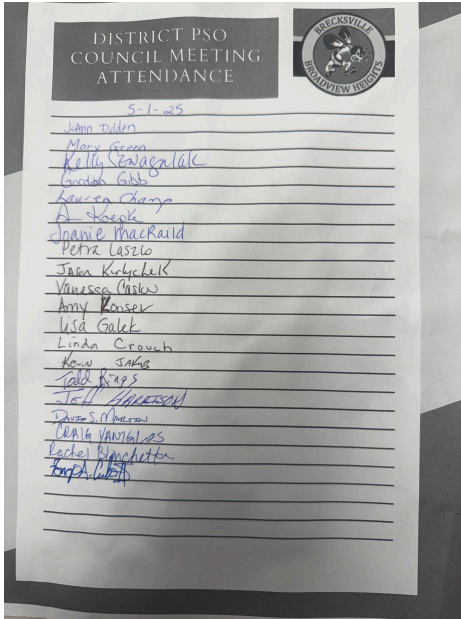 DISTRICT PSO
COUNCIL MEETING
ATTENDANCE
BRECKSVILLE
BROADVIEW HEIGHTS
5-1-25
JoAnn Dulden
Mary Green
Kelly
Gordon Gibb
Lauren Champ
Koepke
Joanie MacRaild
Petra Laszlo
Jason Kurlychek
Vanessa
Amy
Lisa Galek
Linda Crouch
Kevin JAKUB
Todd Rings
JEFF HARRISON
DAVID S. MARTIN
CRAIG
Rachel Blanchette